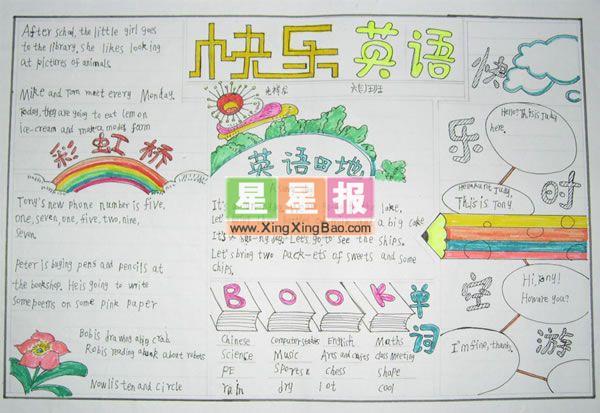 快乐英语
六(1)班
After school, the little girl goes
to the library, she likes looking
at pictures of animals.
Mike and Tom meet every Monday.
Today, they are going to eat lemon
ice-cream and make a model farm
彩虹桥
Tony's new phone number is five,
one, seven, one, five, two, nine,
seven.
Peter is buying pens and pencils at
the bookshop. He is going to write
some poems on some pink paper
Bob is drawing a big crab
Rob is reading a book about robots
Now listen and circle
英语田地
It's
lake.
Let's
a big cake
It's
Let's go to see the ships.
Let's bring two pack-ets of sweets and some
chips.
星星报
www.XingXingBao.com
BOOK单词
Chinese Computer studies English Maths
Science Music Arts and crafts class meeting
PE Sports chess shape
rain dry lot cool
快乐时
Hello! This is Judy
here.
This is Tony
Hi, Tony!
How are you?
I'm fine, thanks.
宝
游